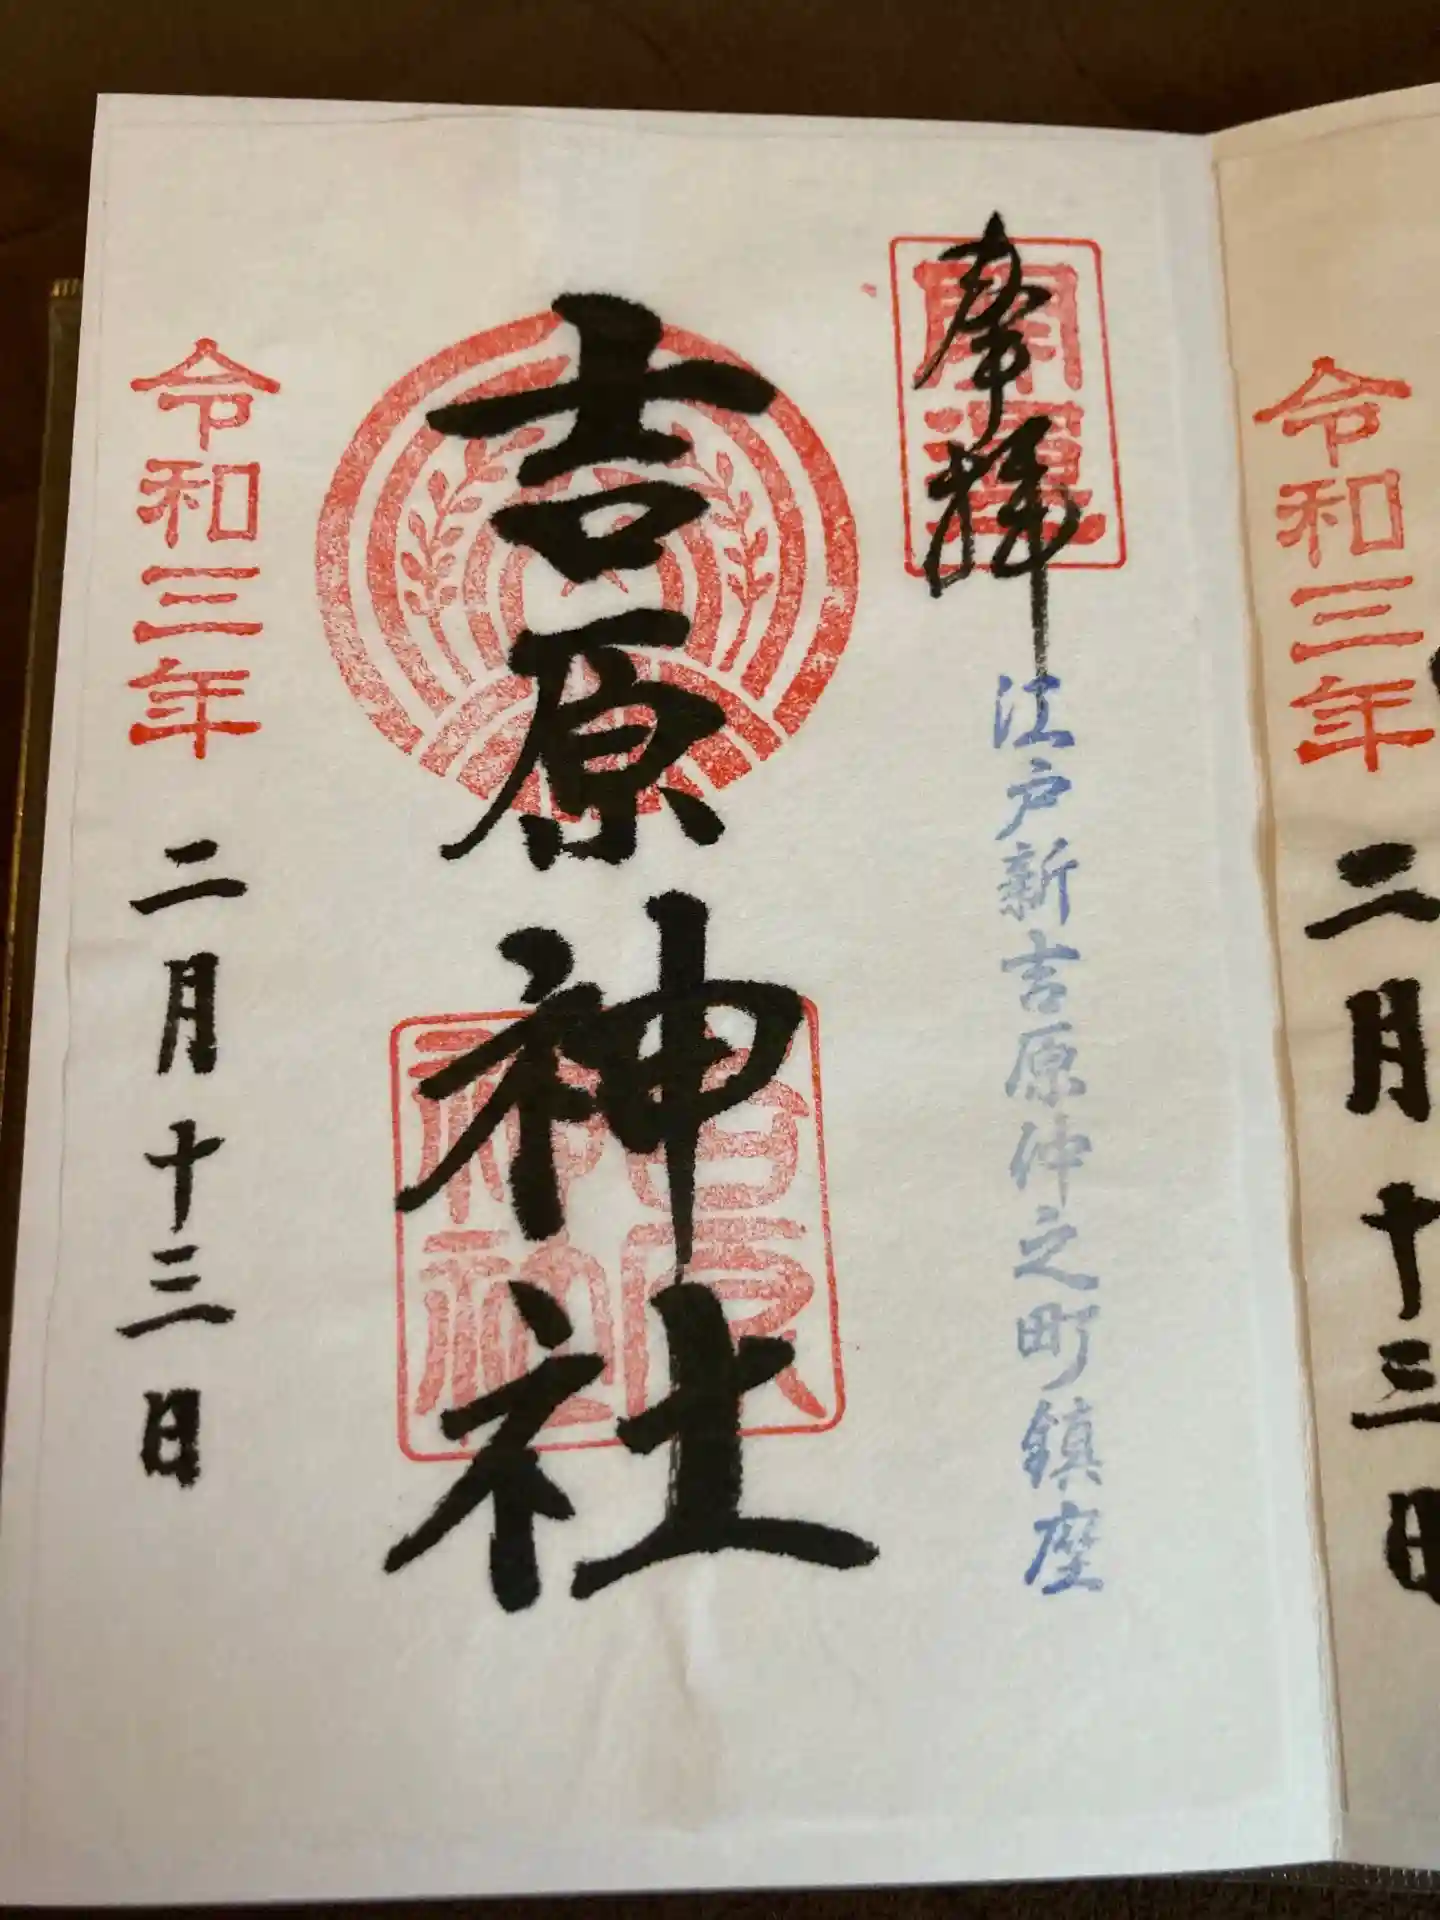 令和三年
二月十三日
奉拝
開運
江戸新吉原仲之町鎮座
吉原神社
吉原
神社
令和三年
二月十三日